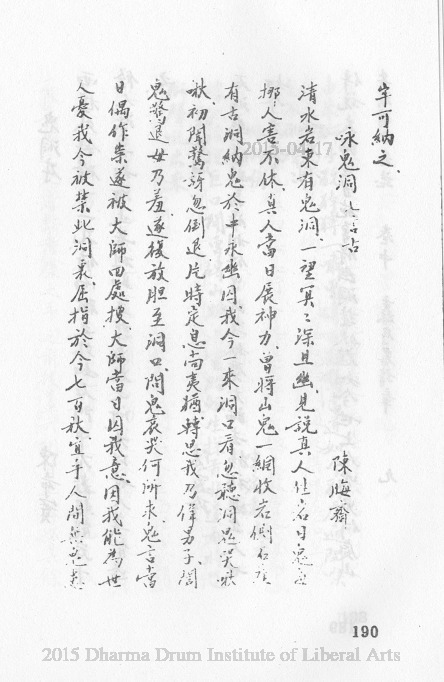 岸可納之、
咏鬼洞七言古
陳晦齋
清水岩東有鬼洞、一望冥〻深且幽、見說真人住岩日鬼
挪人害不休、真人當日展神力、曾將山鬼一網收岩側
有古洞納鬼於中永幽囚、我今一來洞口看、忽聽洞鬼哭啾
啾、初聞驚訝忽倒退、片時定息尚夷猶、轉思我乃偉男子、聞
鬼驚退毋乃羞、遂復放胆至洞口、問鬼哀哭何所求、鬼言當
日偶作祟遂被大師四處搜、大師當日囚我意、因我能為世
人憂我今被禁此洞裏、屈指於今七百秋、宜乎人間無鬼
2015-04-17
190
2015 Dharma Drum Institute of Liberal Arts